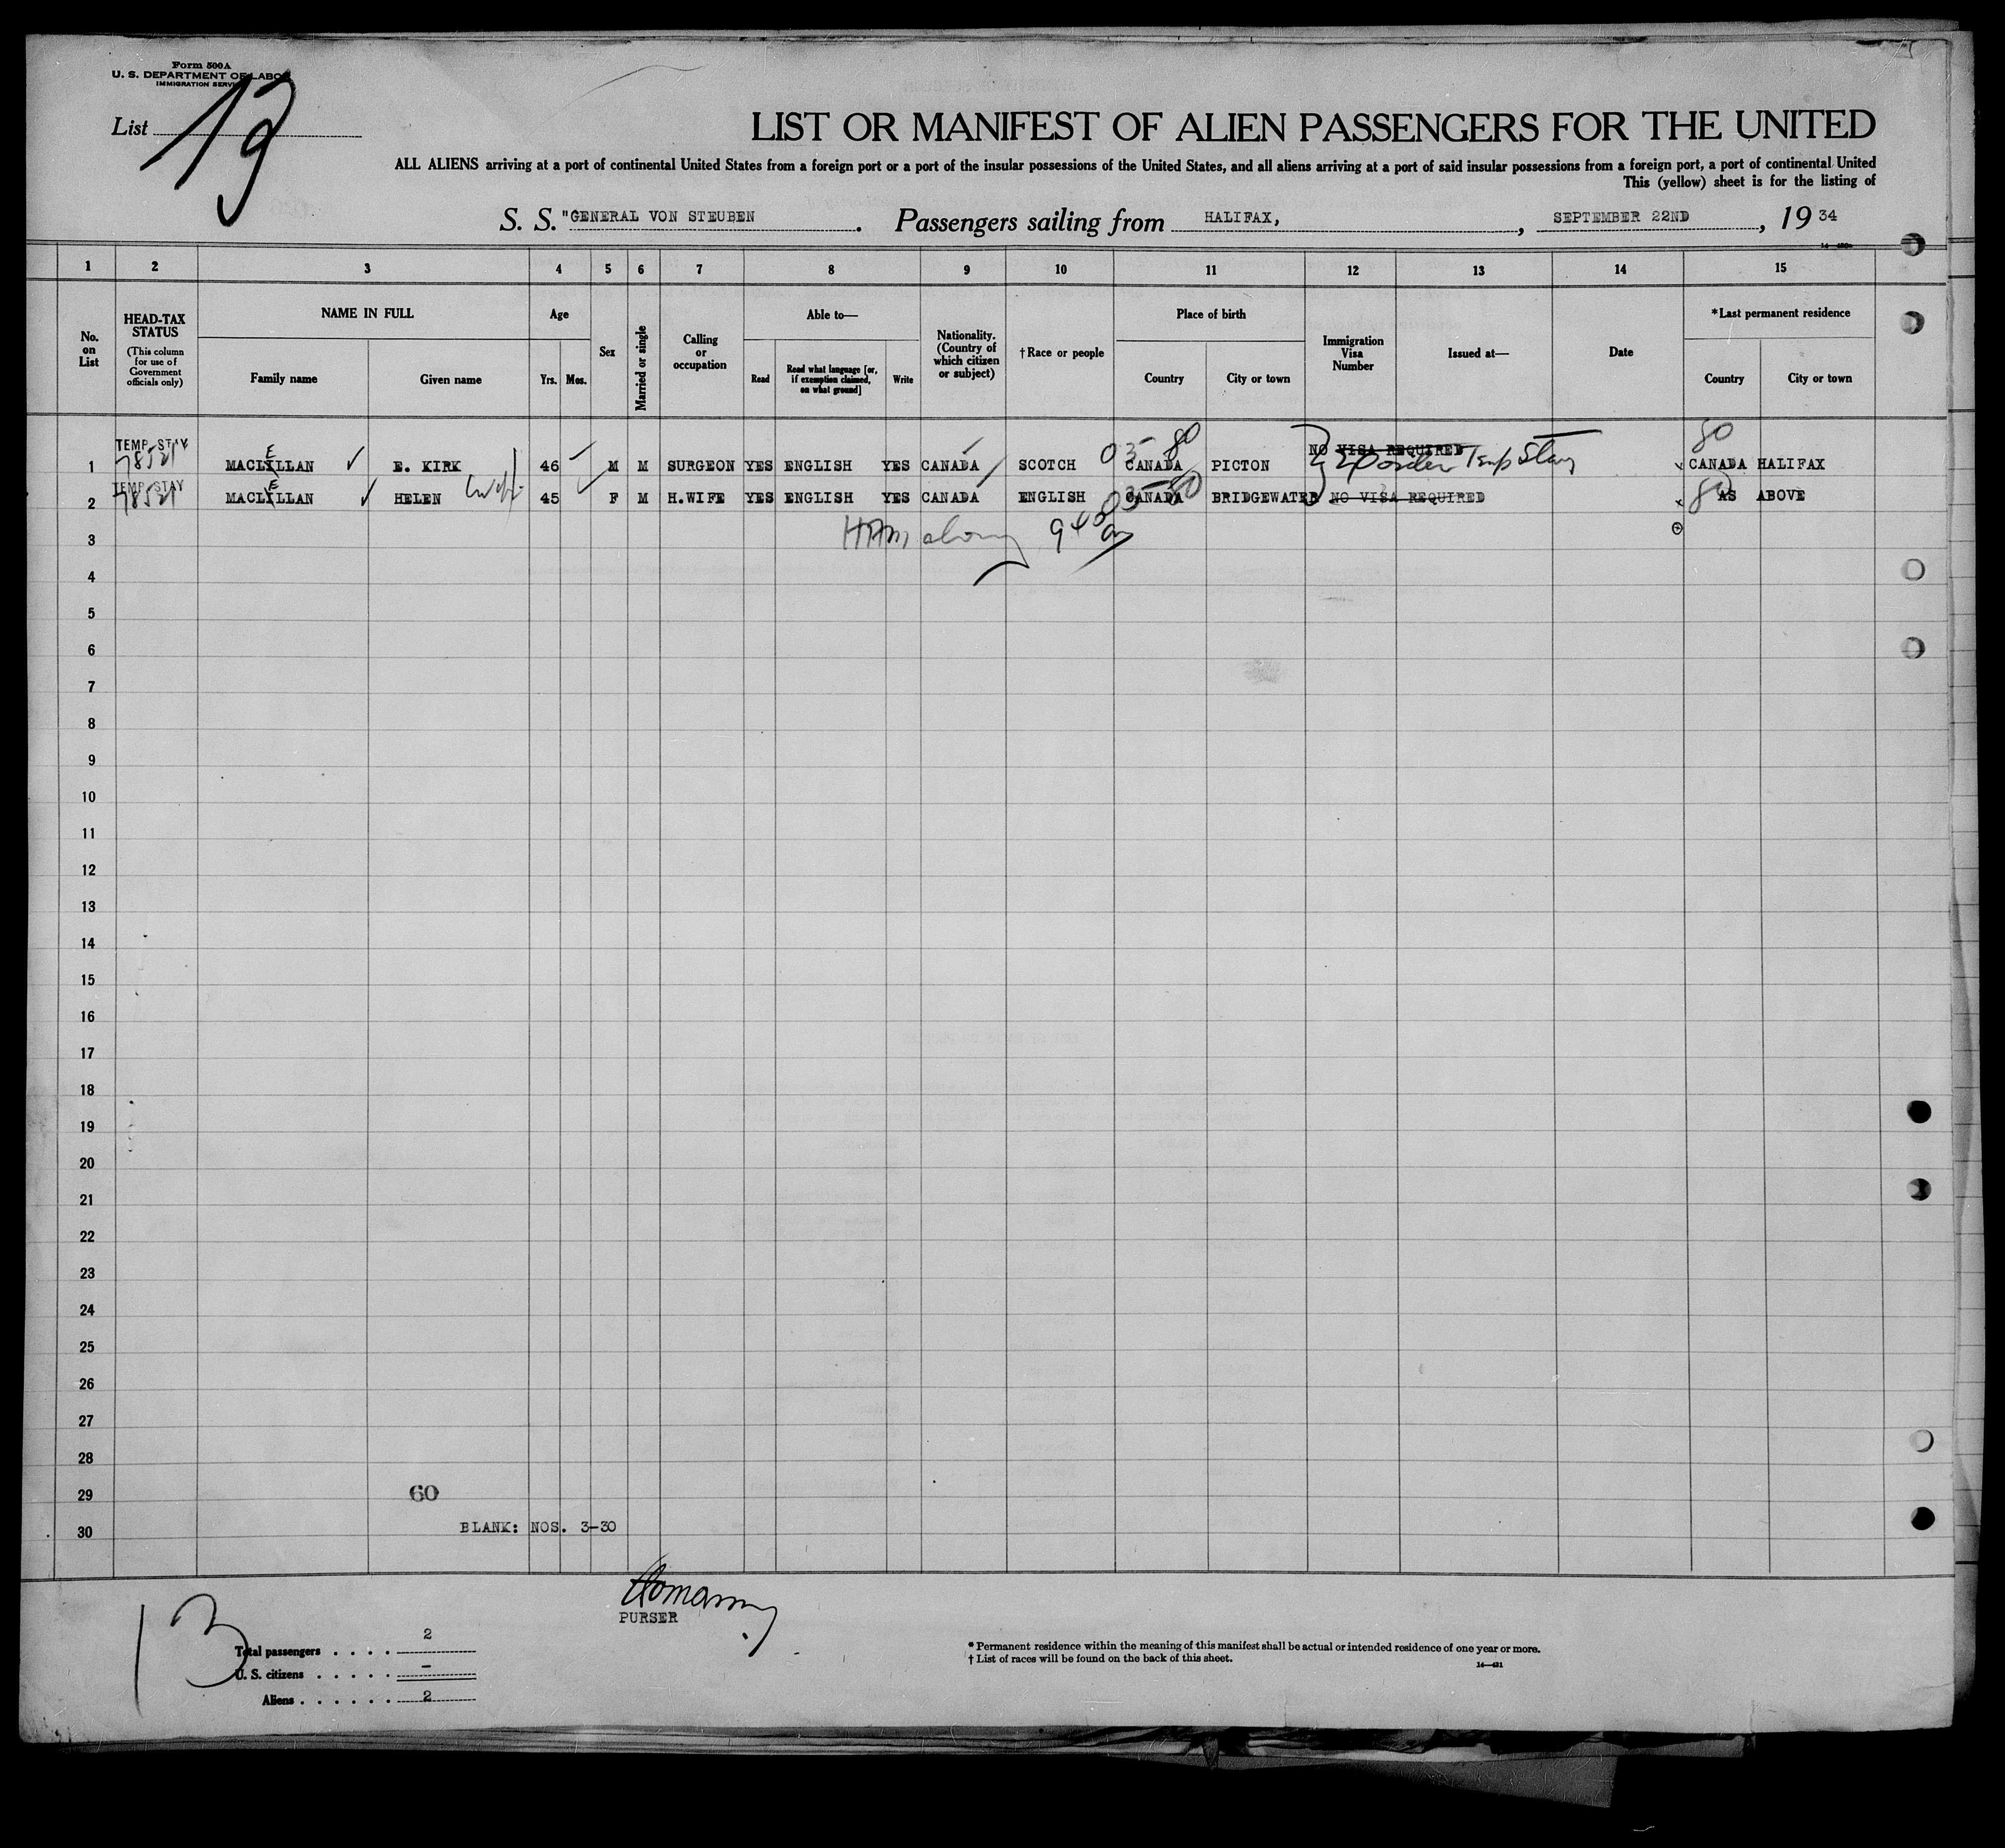 Form 500A
U. S. DEPARTMENT OF LABOR
IMMIGRATION SERVICE
List
LIST OR MANIFEST OF ALIEN PASSENGERS FOR THE UNITED
ALL ALIENS arriving at a port of continental United States from a foreign port or a port of the insular possessions of the United States, and all aliens arriving at a port of said insular possessions from a foreign port, a port of continental United
This (yellow) sheet is for the listing of
S. S. "GENERAL VON STEUBEN. Passengers sailing from HALIFAX, , SEPTEMBER 22ND, 19 34
1 2 3 4 5 6 7 8 9 10 11 12 13 14 15
No. on List
HEAD-TAX STATUS (This column for use of Government officials only)
NAME IN FULL
Family name Given name
Age
Yrs. Mos.
Sex
Married or single
Calling or occupation
Able to—
Read Read what language [or, if exemption claimed, on what ground] Write
Nationality. (Country of which citizen or subject)
† Race or people
Place of birth
Country City or town
Immigration Visa Number
Issued at—
Date
*Last permanent residence
Country City or town
80 80
TEMP STAY E NO VISA REQUIRED Temp Stay
1 MACLILLAN ✓ E. KIRK 46 M M SURGEON YES ENGLISH YES CANADA SCOTCH CANADA PICTON CANADA HALIFAX
TEMP STAY E
2 MACLILLAN ✓ HELEN wife 45 F M H.WIFE YES ENGLISH YES CANADA ENGLISH CANADA BRIDGEWATER NO VISA REQUIRED 80 AS ABOVE
3
4
5
6
7
8
9
10
11
12
13
14
15
16
17
18
19
20
21
22
23
24
25
26
27
28
29 60
30 BLANK: NOS. 3-30
PURSER
13
Total passengers . . . . 2
U. S. citizens . . . . . -
Aliens . . . . . . 2
* Permanent residence within the meaning of this manifest shall be actual or intended residence of one year or more.
† List of races will be found on the back of this sheet.
14—431